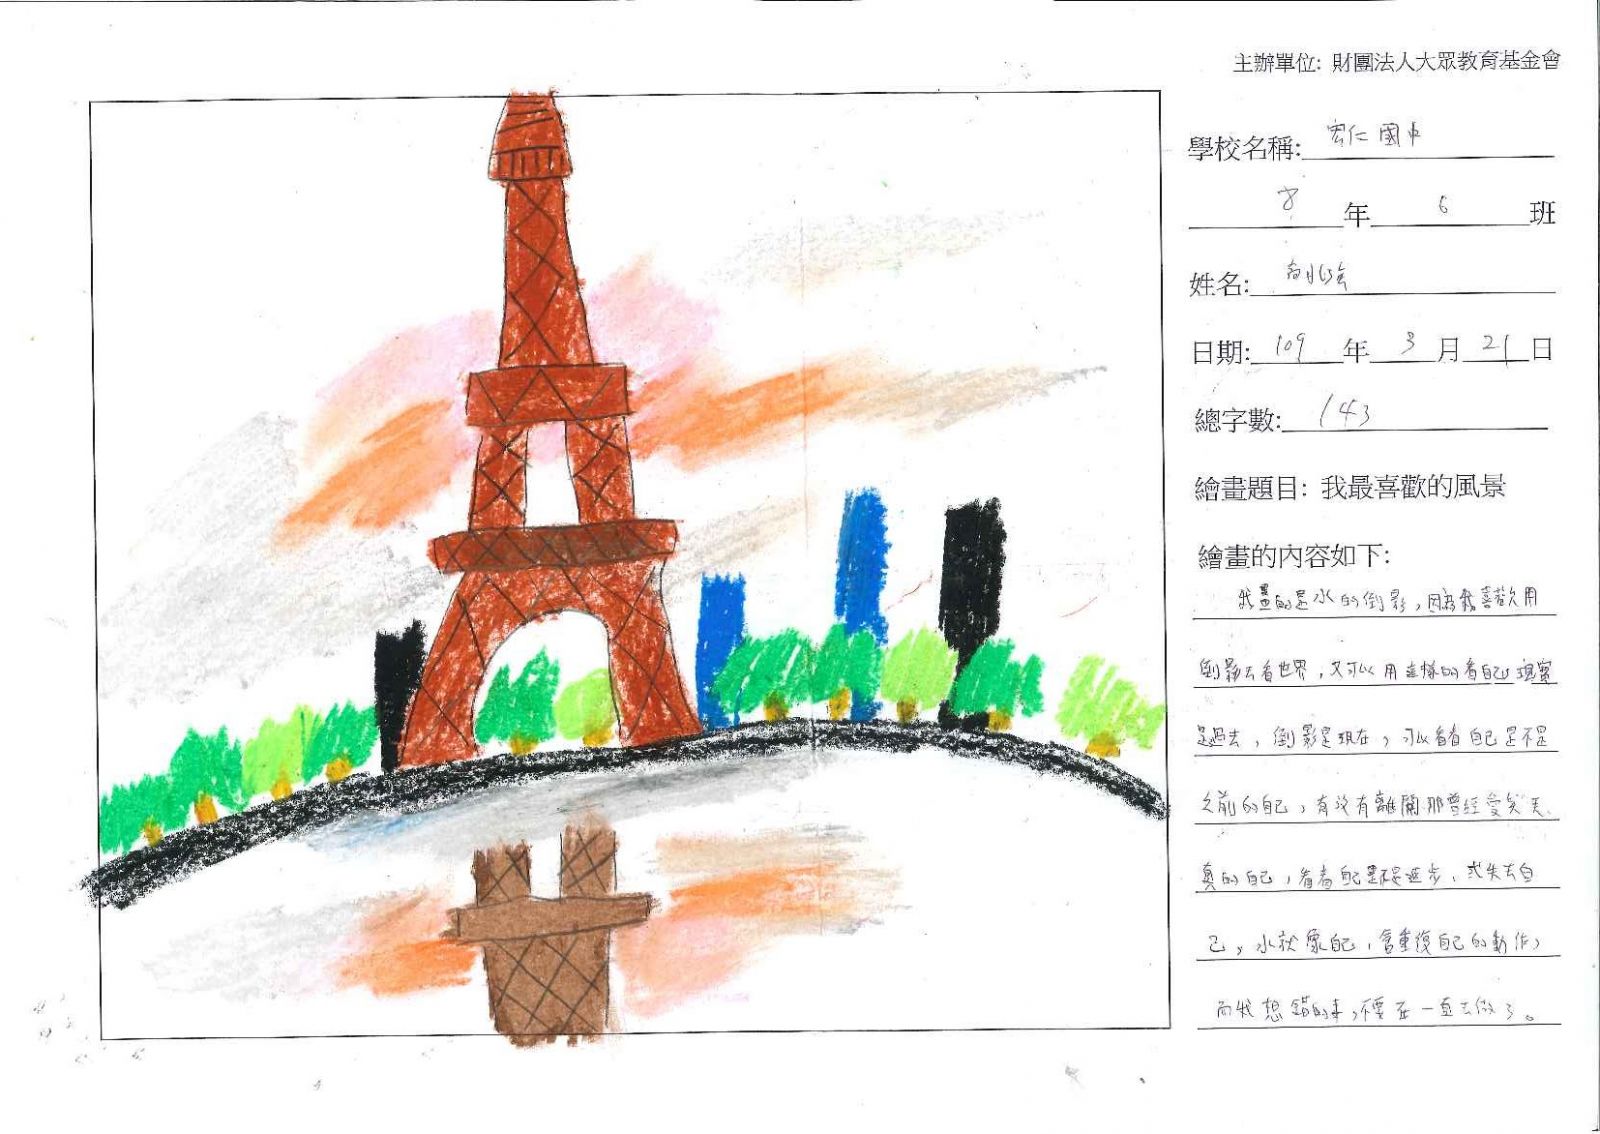 主辦單位: 財團法人大眾教育基金會
學校名稱: 宏仁國中
8 年 6 班
姓名:
日期: 109 年 3 月 21 日
總字數: 143
繪畫題目: 我最喜歡的風景
繪畫的內容如下:
我畫的是水的倒影,因為我喜歡用
倒影去看世界,又可以用這樣的看自己現實
是過去,倒影是現在,可以看看自己是不是
之前的自己,有沒有離開那曾經愛笑天
真的自己,看看自己是不是進步、或失去自
己,水就像自己,會重復自己的動作,
而我想錯的事,不要在一直去做了。